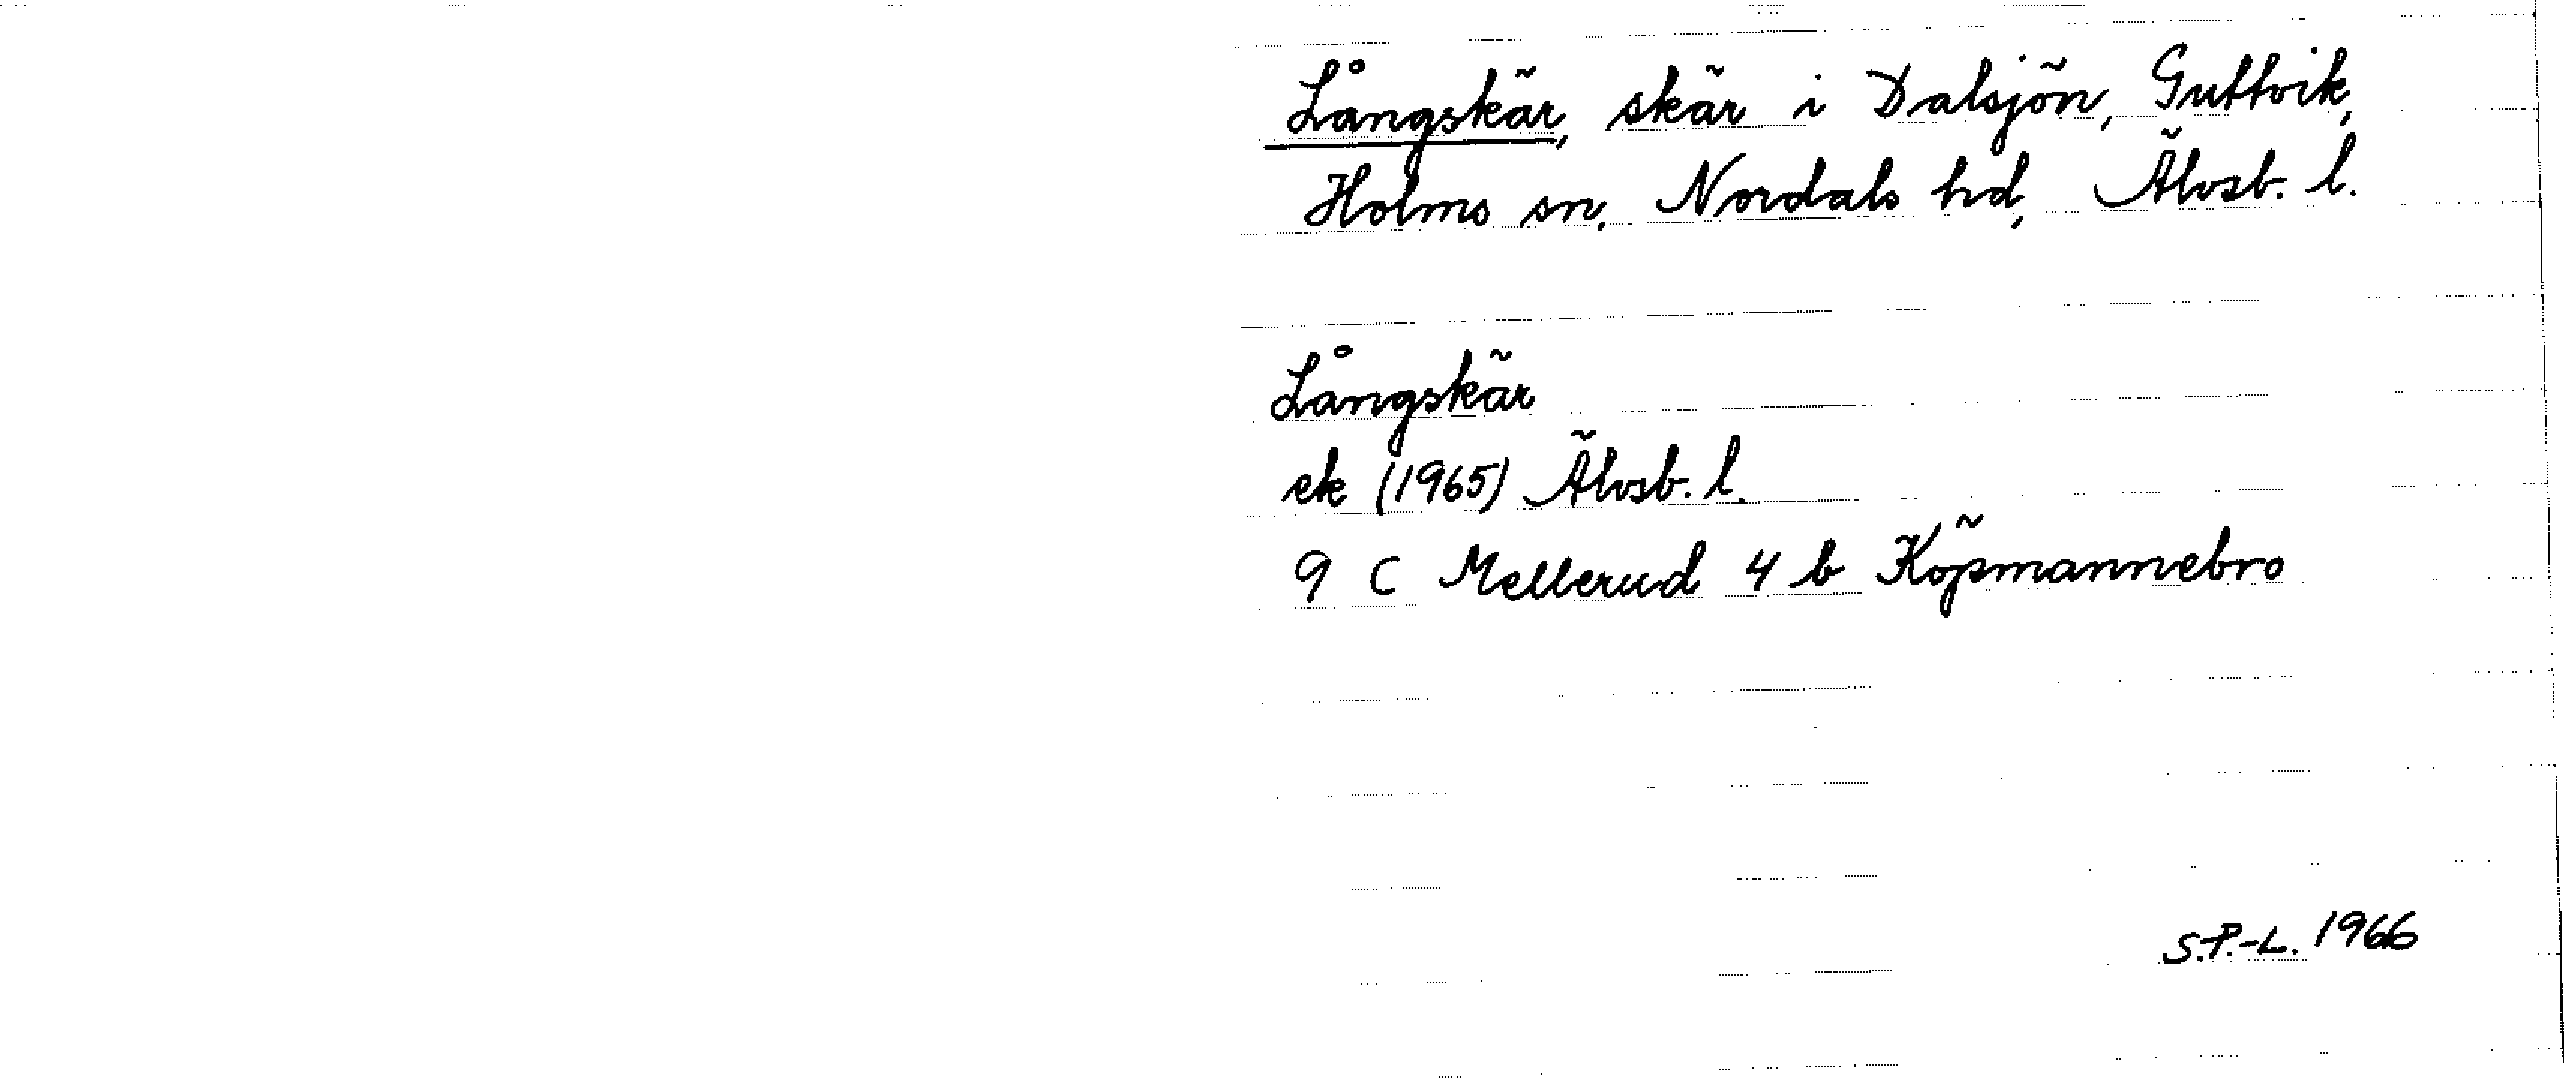 Långskär, skär i Dalsjön, Guttvik,
Holms sn, Nordals hd, Älvsb. l.
Långskär
ek (1965) Älvsb. l.
9 C Mellerud 4 b Köpmannebro
S.P.-L. 1966